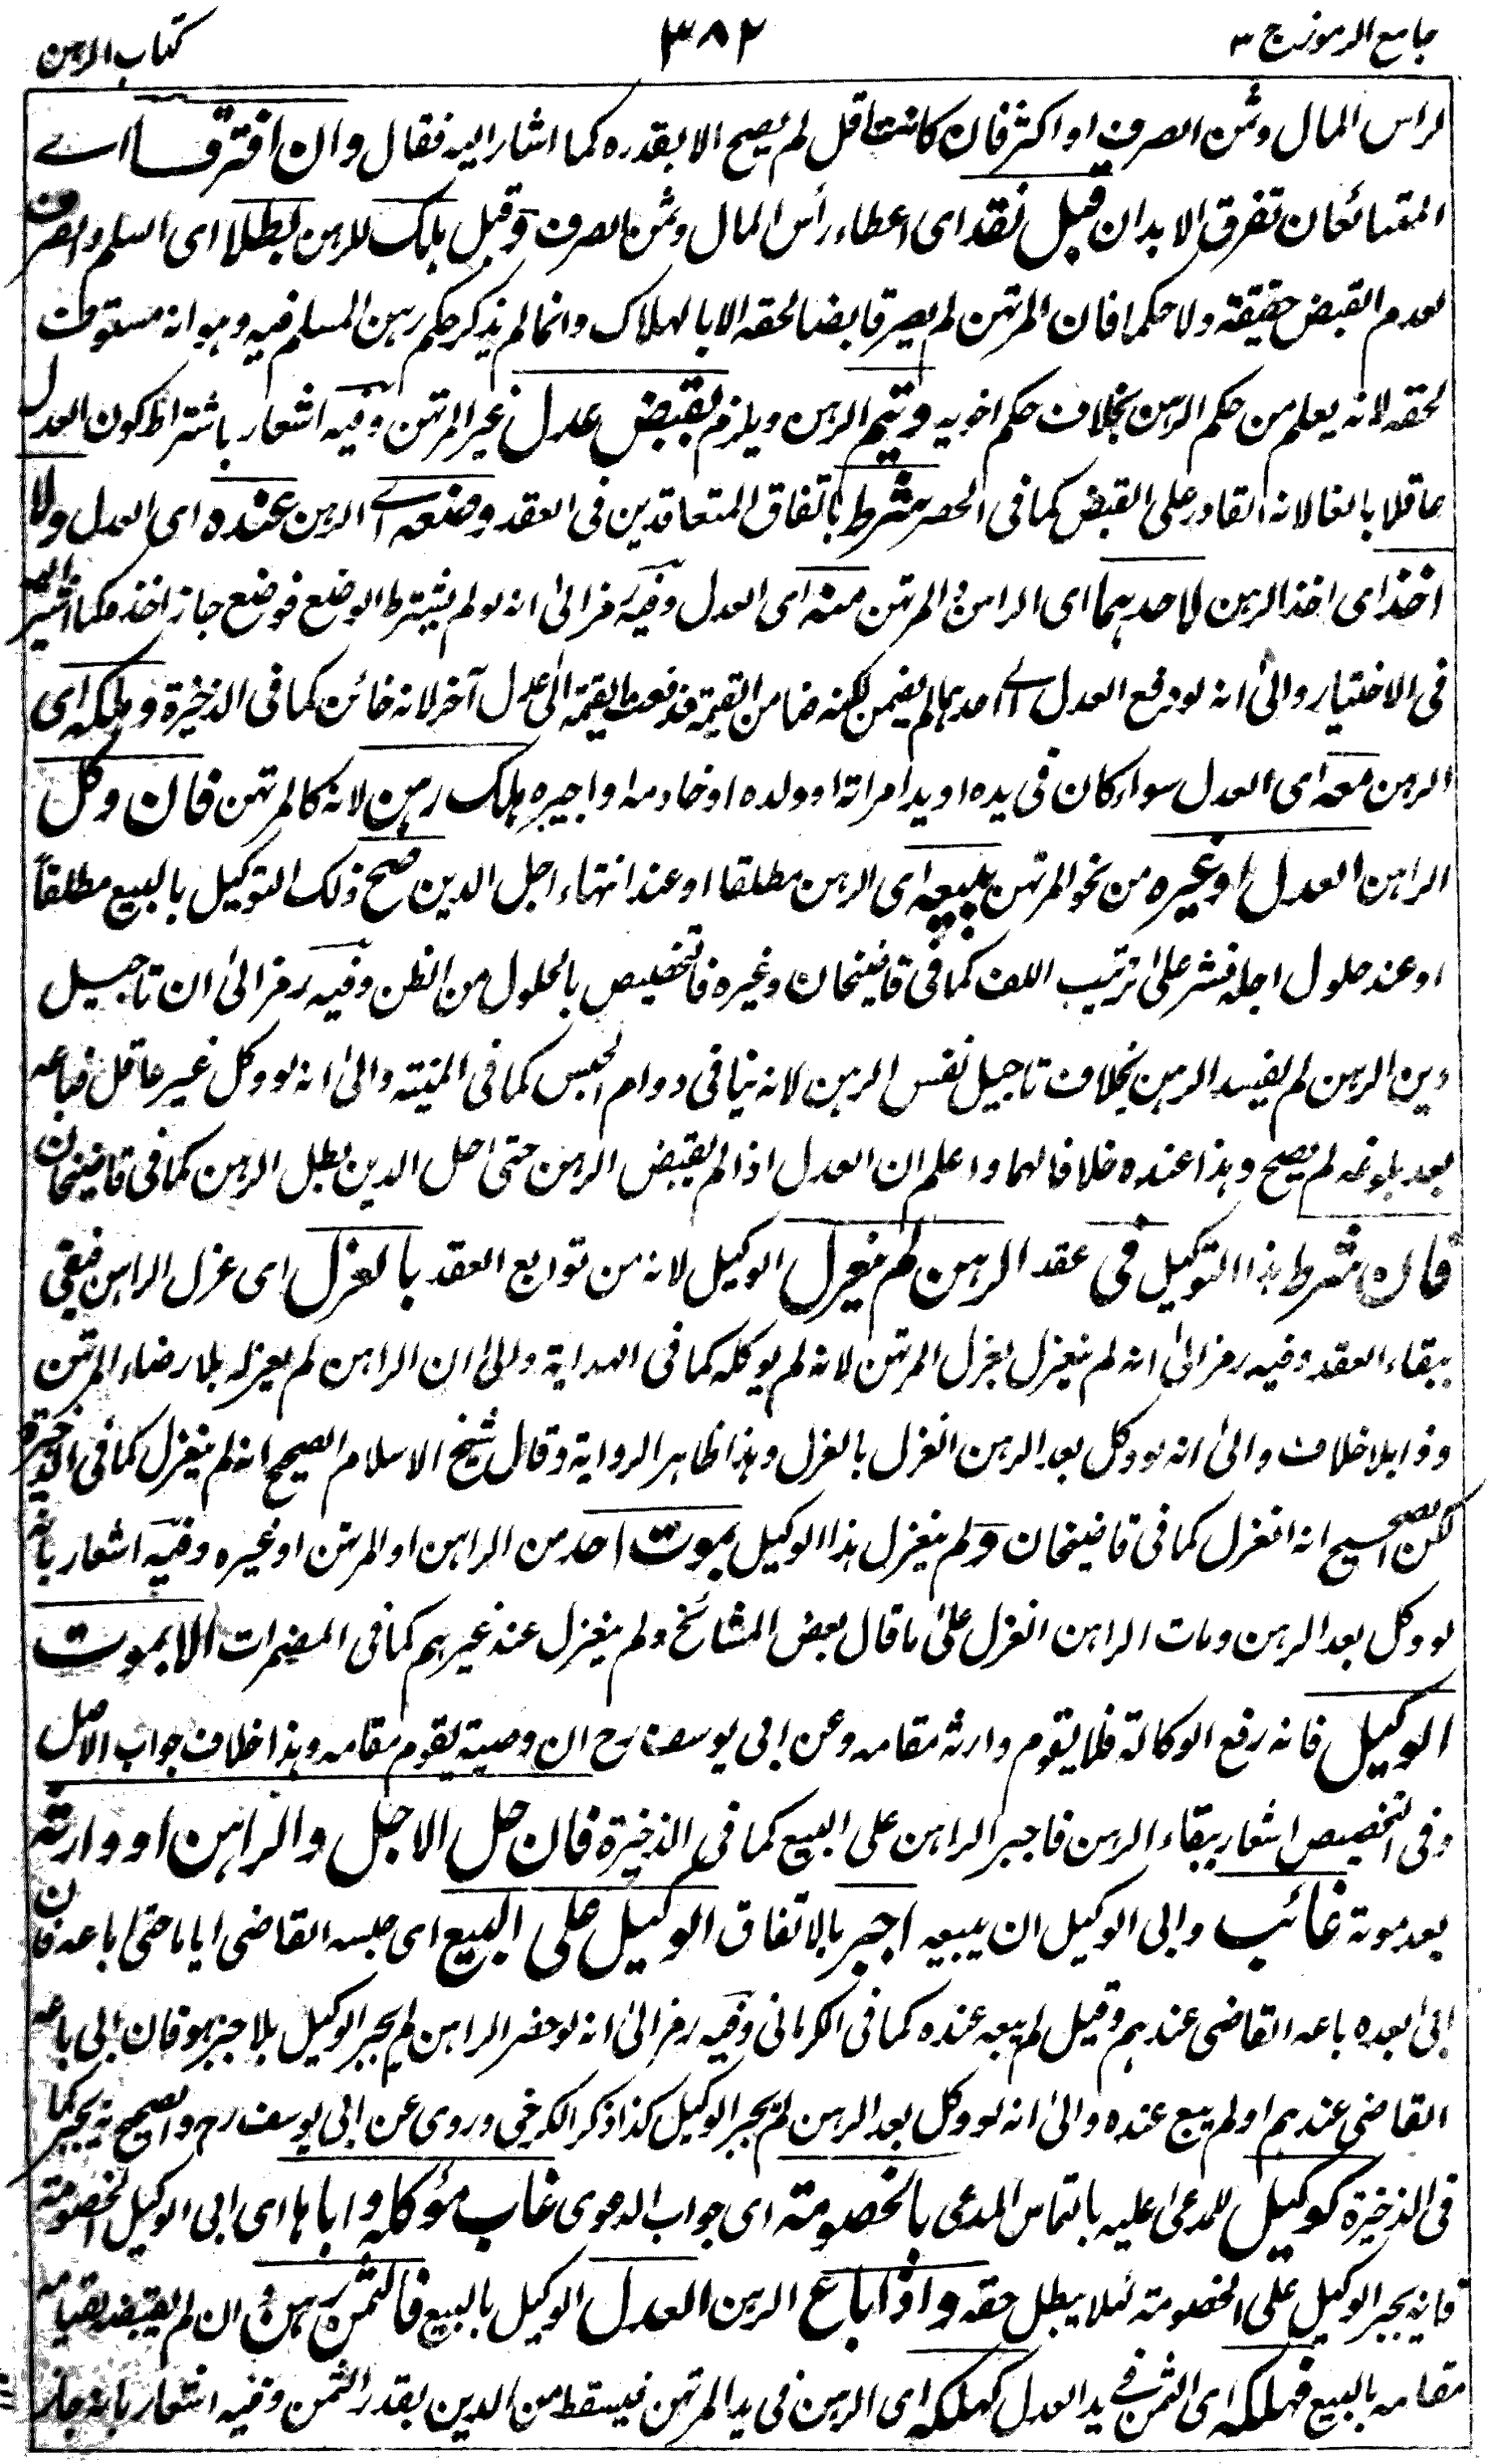 جامع الرموز ج ۳
۳۸۲
کتاب الرهن
لراس المال وثمن الصرف او اکثر فان کانت اقل لم یصح الا بقدره کما اشار الیه فقال وان افترقا اے
المتبائعان تفرق الابدان قبل نقد ای اعطاء رأس المال وثمن الصرف وقبل هلک للرهن بطلا ای السلم والصرف
لعدم القبض حقیقة ولا حکما فان المرتهن لم یصر قابضا لحقه الا بالهلاک وانما لم یذکر حکم رهن المسلم فیه وهو انه مستوف
لحقه لانه یعلم من حکم الرهن بخلاف حکم اخویه ویتم الرهن ویلزم بقبض عدل غیر المرتهن وفیه اشعار باشتراط کون العدل
عاقلا بالغا لانه القادر علی القبض کما فی الحصر شرط باتفاق المتعاقدین فی العقد وضعه اے الرهن عنده ای العدل ولا
اخذ ای اخذ الرهن لاحدهما ای الراهن والمرتهن منه ای العدل وفیه رمز الی انه لو لم یشترط الوضع فوضع جاز اخذه کما اشیر الیه
فی الاختیار والی انه لو دفع العدل اے احدهما لم یضمن لکنه ضامن القیمة فدفعت القیمة الی عدل آخر لانه خائن کما فی الذخیرة وهلکه ای
الرهن معه ای العدل سواء کان فی یده او ید امراته او ولده او خادمه او اجیره هلک رهن لانه کالمرتهن فان وکل
الراهن العدل او غیره من نحو المرتهن ببیعه ای الرهن مطلقا او عند انتهاء اجل الدین صح ذلک التوکیل بالبیع مطلقاً
او عند حلول اجله فنشر علی ترتیب اللف کما فی قاضیخان وغیره فالتخصیص بالحلول من الظن وفیه رمز الی ان تاجیل
دین الرهن لم یفسد الرهن بخلاف تاجیل نفس الرهن لانه ینافی دوام الحبس کما فی المنیة والی انه لو وکل غیر عاقل فباعه
بعد بلوغه لم یصح وهذا عنده خلافا لهما واعلم ان العدل اذا لم یقبض الرهن حتی حل الدین بطل الرهن کما فی قاضیخان
فان شرط هذا التوکیل فی عقد الرهن لم ینعزل الوکیل لانه من توابع العقد بالعزل ای عزل الراهن فیبقی
ببقاء العقد وفیه رمز الی انه لم ینعزل بعزل المرتهن لانه لم یوکله کما فی الهدایة والی ان الراهن لم یعزله بلا رضاء المرتهن
وذا بلا خلاف والی انه لو وکل بعد الرهن انعزل بالعزل وهذا ظاهر الروایة وقال شیخ الاسلام الصحیح انه لم ینعزل کما فی الذخیرة
لکن الصحیح انه انعزل کما فی قاضیخان ولم ینعزل هذا الوکیل بموت احد من الراهن او المرتهن او غیره وفیه اشعار بانه
لو وکل بعد الرهن ومات الراهن انعزل علی ما قال بعض المشائخ ولم ینعزل عند غیرهم کما فی المضمرات الا بموت
الوکیل فانه رفع الوکالة فلا یقوم وارثه مقامه وعن ابی یوسف رح ان وصیه یقوم مقامه وهذا خلاف جواب الاصل
وفی التخصیص اشعار ببقاء الرهن فاجبر الراهن علی البیع کما فی الذخیرة فان حل الاجل والراهن او وارثه
بعد موته غائب وابی الوکیل ان یبیعه اجبر بالاتفاق الوکیل علی البیع ای حبسه القاضی ایاما حتی باعه فان
ابی بعده باعه القاضی عندهم وقیل لم یبعه عنده کما فی الکرمانی وفیه رمز الی انه لو حضر الراهن لم یجبر الوکیل بلا جبر هو فان ابی باعه
القاضی عندهم او لم یبع عنده والی انه لو وکل بعد الرهن لم یجبر الوکیل کذا ذکر الکرخی وروی عن ابی یوسف رح والصحیح انه یجبر کما
فی الذخیرة کوکیل للمدعی علیه بالتماس المدعی بالخصومة ای جواب الدعوی غاب مؤکله واباها ای ابی الوکیل الخصومة
فانه یجبر الوکیل علی الخصومة لئلا یبطل حقه واذا باع الرهن العدل الوکیل بالبیع فالثمن رهن وان لم یقبض لقیامه
مقامه بالبیع فهلکه ای الثمن فے ید العدل کهلکه ای الرهن فی ید المرتهن فیسقط من الدین بقدر الثمن وفیه اشعار بانه جاز